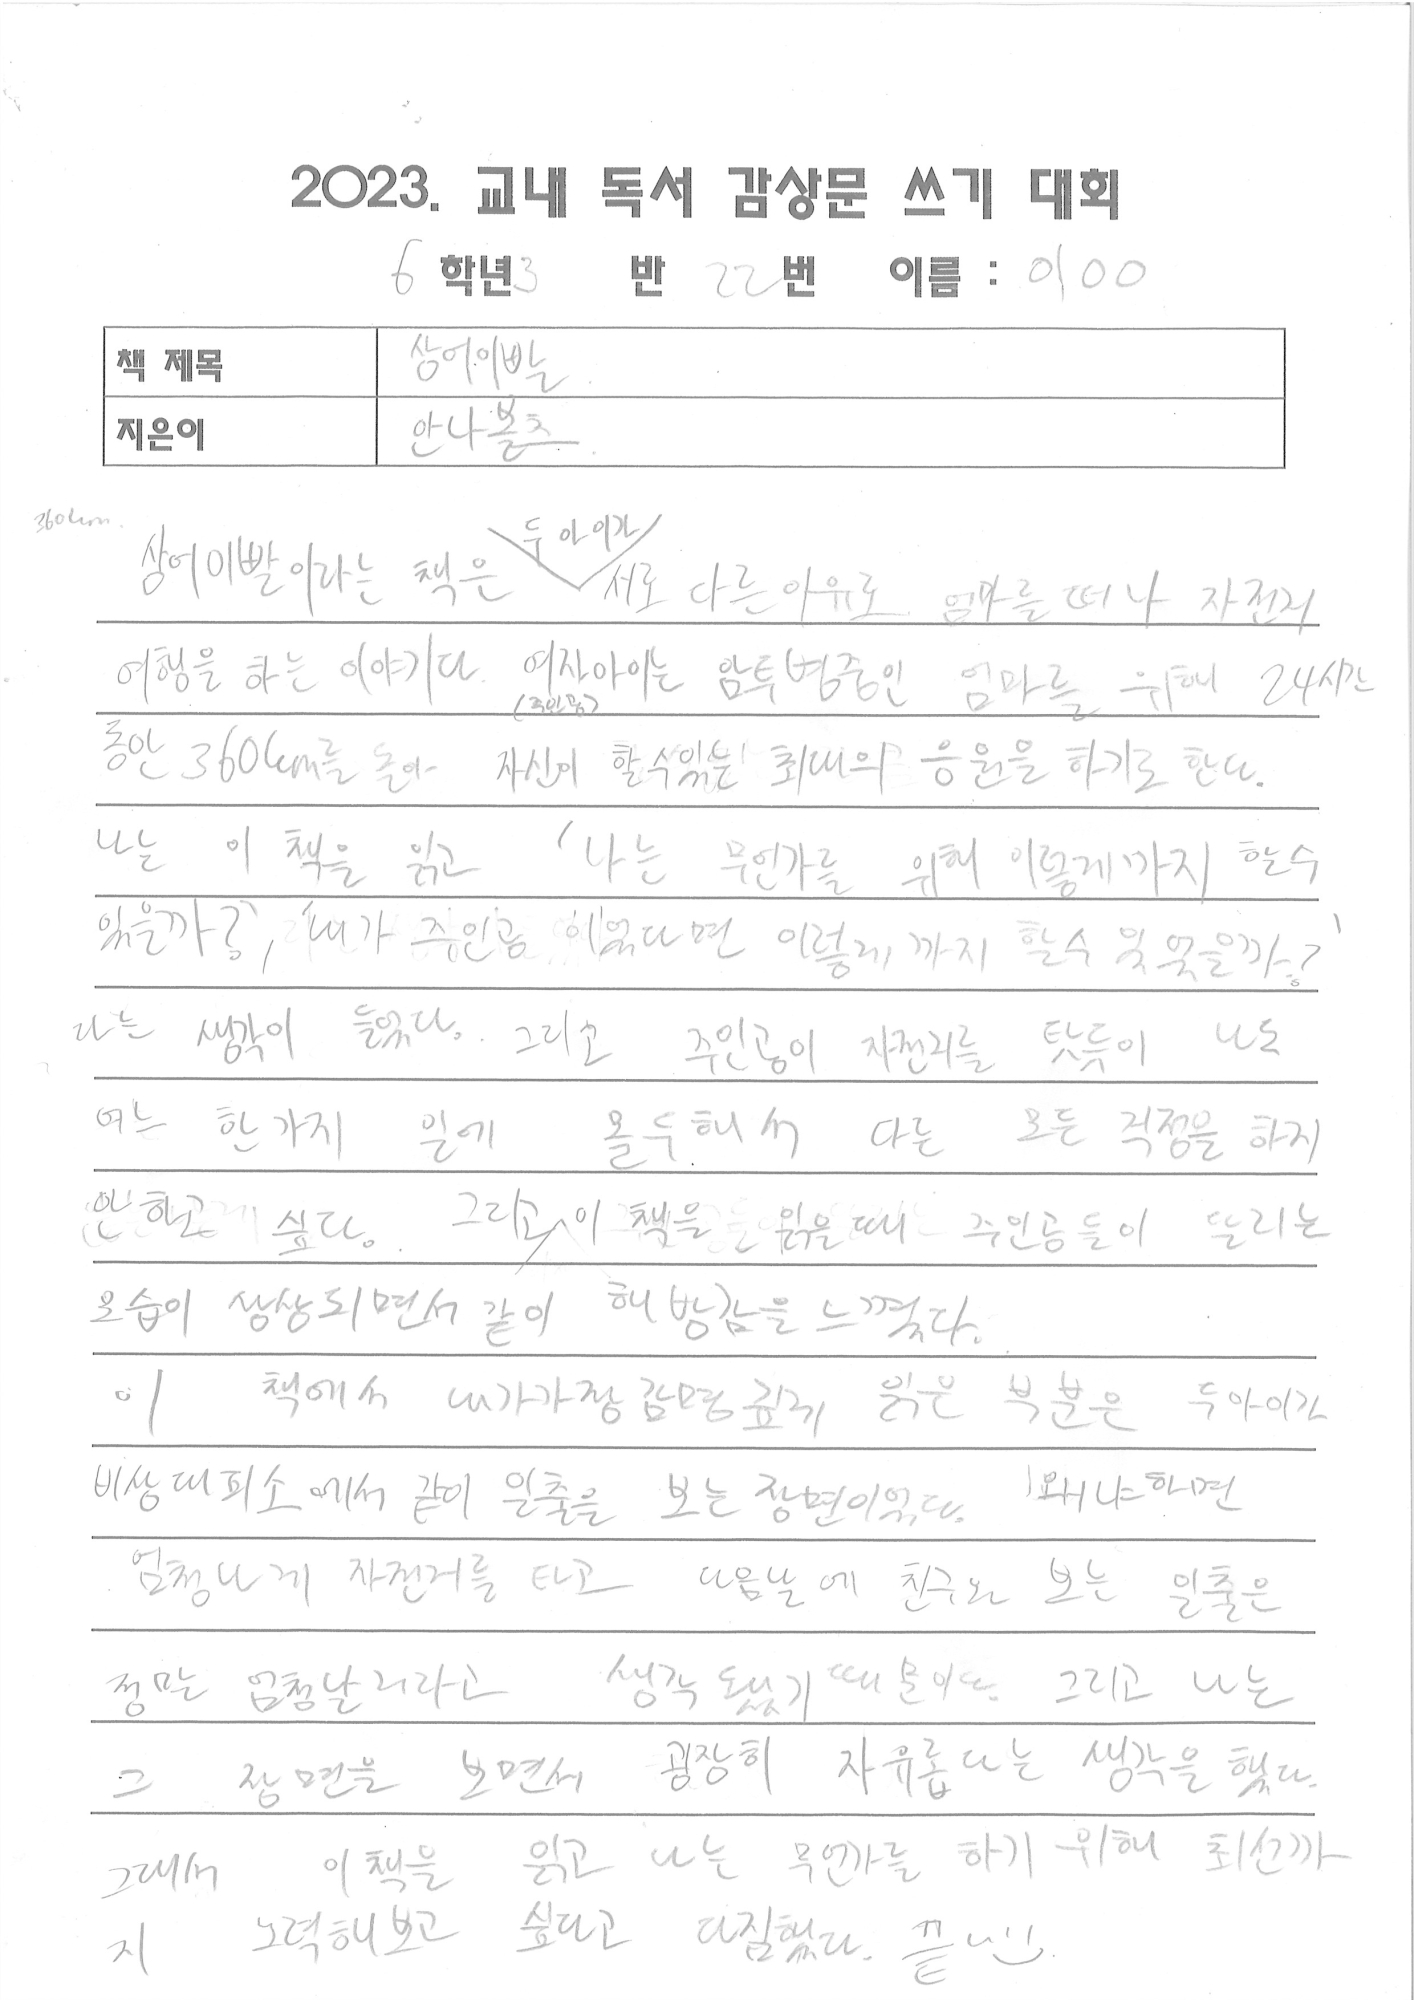 2023. 교내 독서 감상문 쓰기 대회
6 학년 3 반 22 번 이름 : 이00
책 제목 상어이빨
지은이 안나볼츠
360km.
두 아이가
상어이빨이라는 책은 서로 다른 이유로 엄마를 떠나 자전거
여행을 하는 이야기다. 여자아이는 암투병중인 엄마를 위해 24시간
(주인공)
동안 360km를 돌아 자신이 할수있는 최대의 응원을 하기로 한다.
나는 이 책을 읽고 '나는 무언가를 위해 이렇게까지 할수
있을까?', '내가 주인공 이였다면 이렇게 까지 할수 있었을까?'
라는 생각이 들었다. 그리고 주인공이 자전거를 탓듯이 나도
어느 한가지 일에 몰두해서 다른 모든 걱정을 하지
안하고 싶다. 그리고 이 책을 읽을때 주인공들이 달리는
모습이 상상되면서 같이 해방감을 느꼈다.
이 책에서 내가가장 감명깊게 읽은 부분은 두아이가
비상대피소에서 같이 일출을 보는 장면이었다. 왜냐하면
엄청나게 자전거를 타고 다음날에 친구와 보는 일출은
정말 엄청날거라고 생각됐기 때문이다. 그리고 나는
그 장면을 보면서 굉장히 자유롭다는 생각을 했다.
그래서 이책을 읽고 나는 무언가를 하기 위해 최선까
지 노력해보고 싶다고 다짐했다. 끝